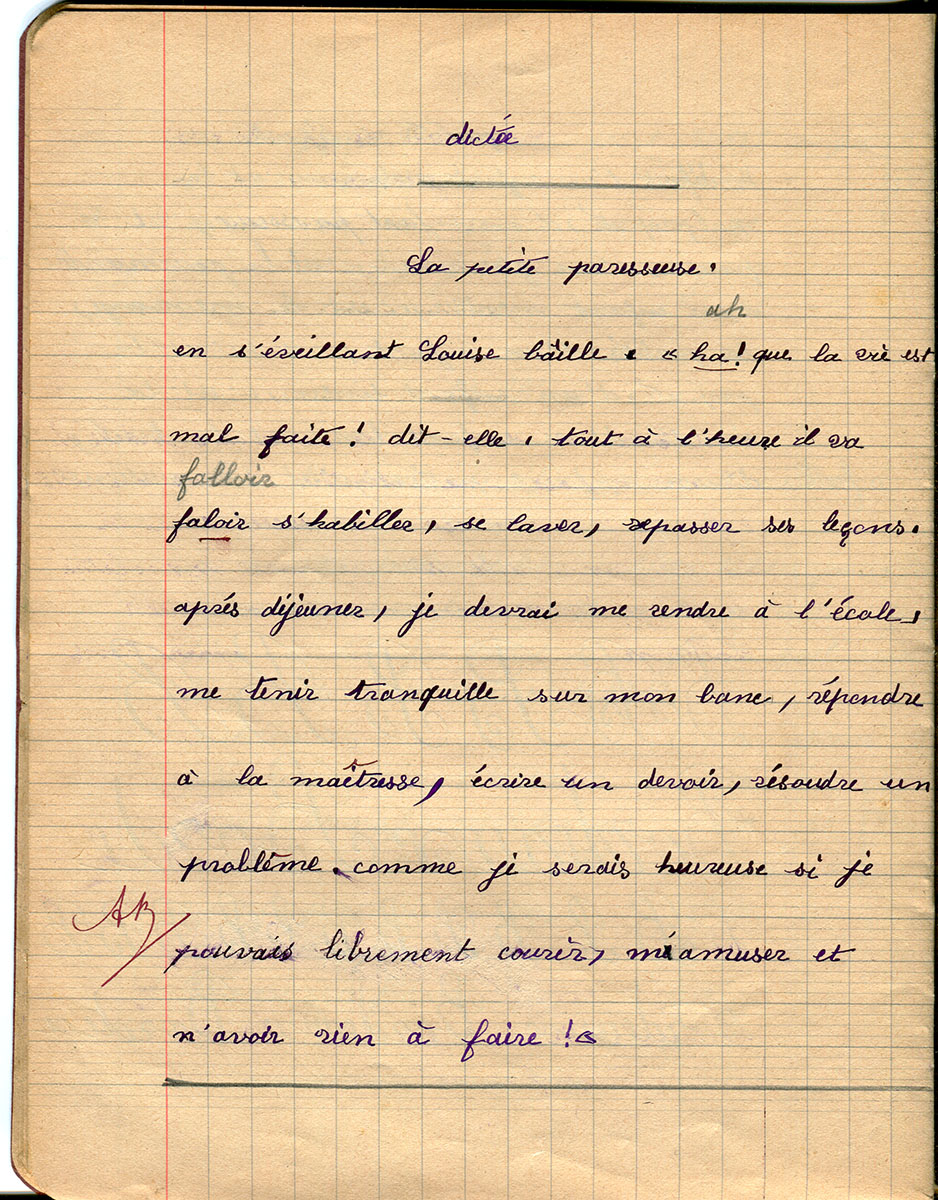 dictée
La petite paresseuse.
ah
en s'éveillant Louise bâille. « ha! que la vie est
mal faite! dit-elle, tout à l'heure il va
falloir
faloir s'habiller, se laver, repasser ses leçons.
aprés déjeuner, je devrai me rendre à l'école,
me tenir tranquille sur mon banc, répondre
à la maîtresse, écrire un devoir, résoudre un
problême. comme je serais heureuse si je
AB
pouvais librement courir, m'amuser et
n'avoir rien à faire! »